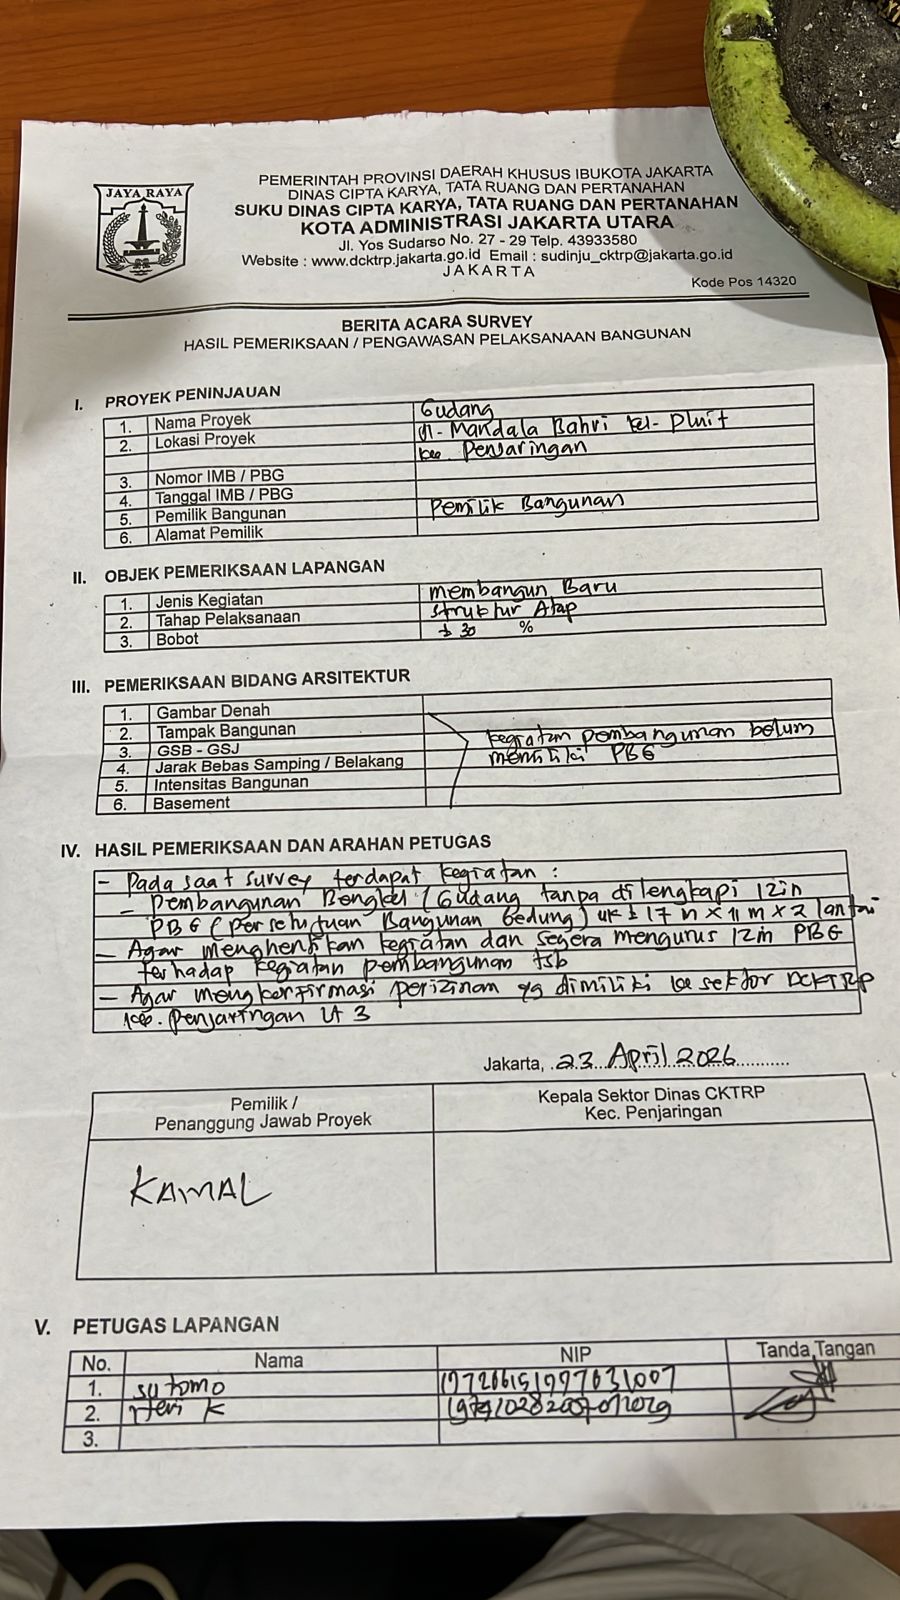 JAYA RAYA
PEMERINTAH PROVINSI DAERAH KHUSUS IBUKOTA JAKARTA
DINAS CIPTA KARYA, TATA RUANG DAN PERTANAHAN
SUKU DINAS CIPTA KARYA, TATA RUANG DAN PERTANAHAN
KOTA ADMINISTRASI JAKARTA UTARA
Jl. Yos Sudarso No. 27 - 29 Telp. 43933580
Website : www.dcktrp.jakarta.go.id Email : sudinju_cktrp@jakarta.go.id
JAKARTA
Kode Pos 14320
BERITA ACARA SURVEY
HASIL PEMERIKSAAN / PENGAWASAN PELAKSANAAN BANGUNAN
I. PROYEK PENINJAUAN
1. Nama Proyek Gudang
2. Lokasi Proyek Jl. Mandala Bahri kel. Pluit
kec. Penjaringan
3. Nomor IMB / PBG
4. Tanggal IMB / PBG
5. Pemilik Bangunan Pemilik Bangunan
6. Alamat Pemilik
II. OBJEK PEMERIKSAAN LAPANGAN
1. Jenis Kegiatan membangun Baru
2. Tahap Pelaksanaan Struktur Atap
3. Bobot ± 30 %
III. PEMERIKSAAN BIDANG ARSITEKTUR
1. Gambar Denah
2. Tampak Bangunan
3. GSB - GSJ kegiatan pembangunan belum
4. Jarak Bebas Samping / Belakang memiliki PBG
5. Intensitas Bangunan
6. Basement
IV. HASIL PEMERIKSAAN DAN ARAHAN PETUGAS
- Pada saat survey terdapat kegiatan :
- Pembangunan Bengkel / Gudang tanpa dilengkapi izin
PBG (Persetujuan Bangunan Gedung) uk ± 17 m x 11 m x 2 lantai
- Agar menghentikan kegiatan dan segera mengurus izin PBG
terhadap kegiatan pembangunan tsb
- Agar mengkonfirmasi perizinan yg dimiliki ke sektor DCKTRP
kec. Penjaringan Lt 3
Jakarta, 23 April 2026
Pemilik /
Penanggung Jawab Proyek
Kepala Sektor Dinas CKTRP
Kec. Penjaringan
KAMAL
V. PETUGAS LAPANGAN
No. Nama NIP Tanda Tangan
1. Sutomo
2. Heri K
3.